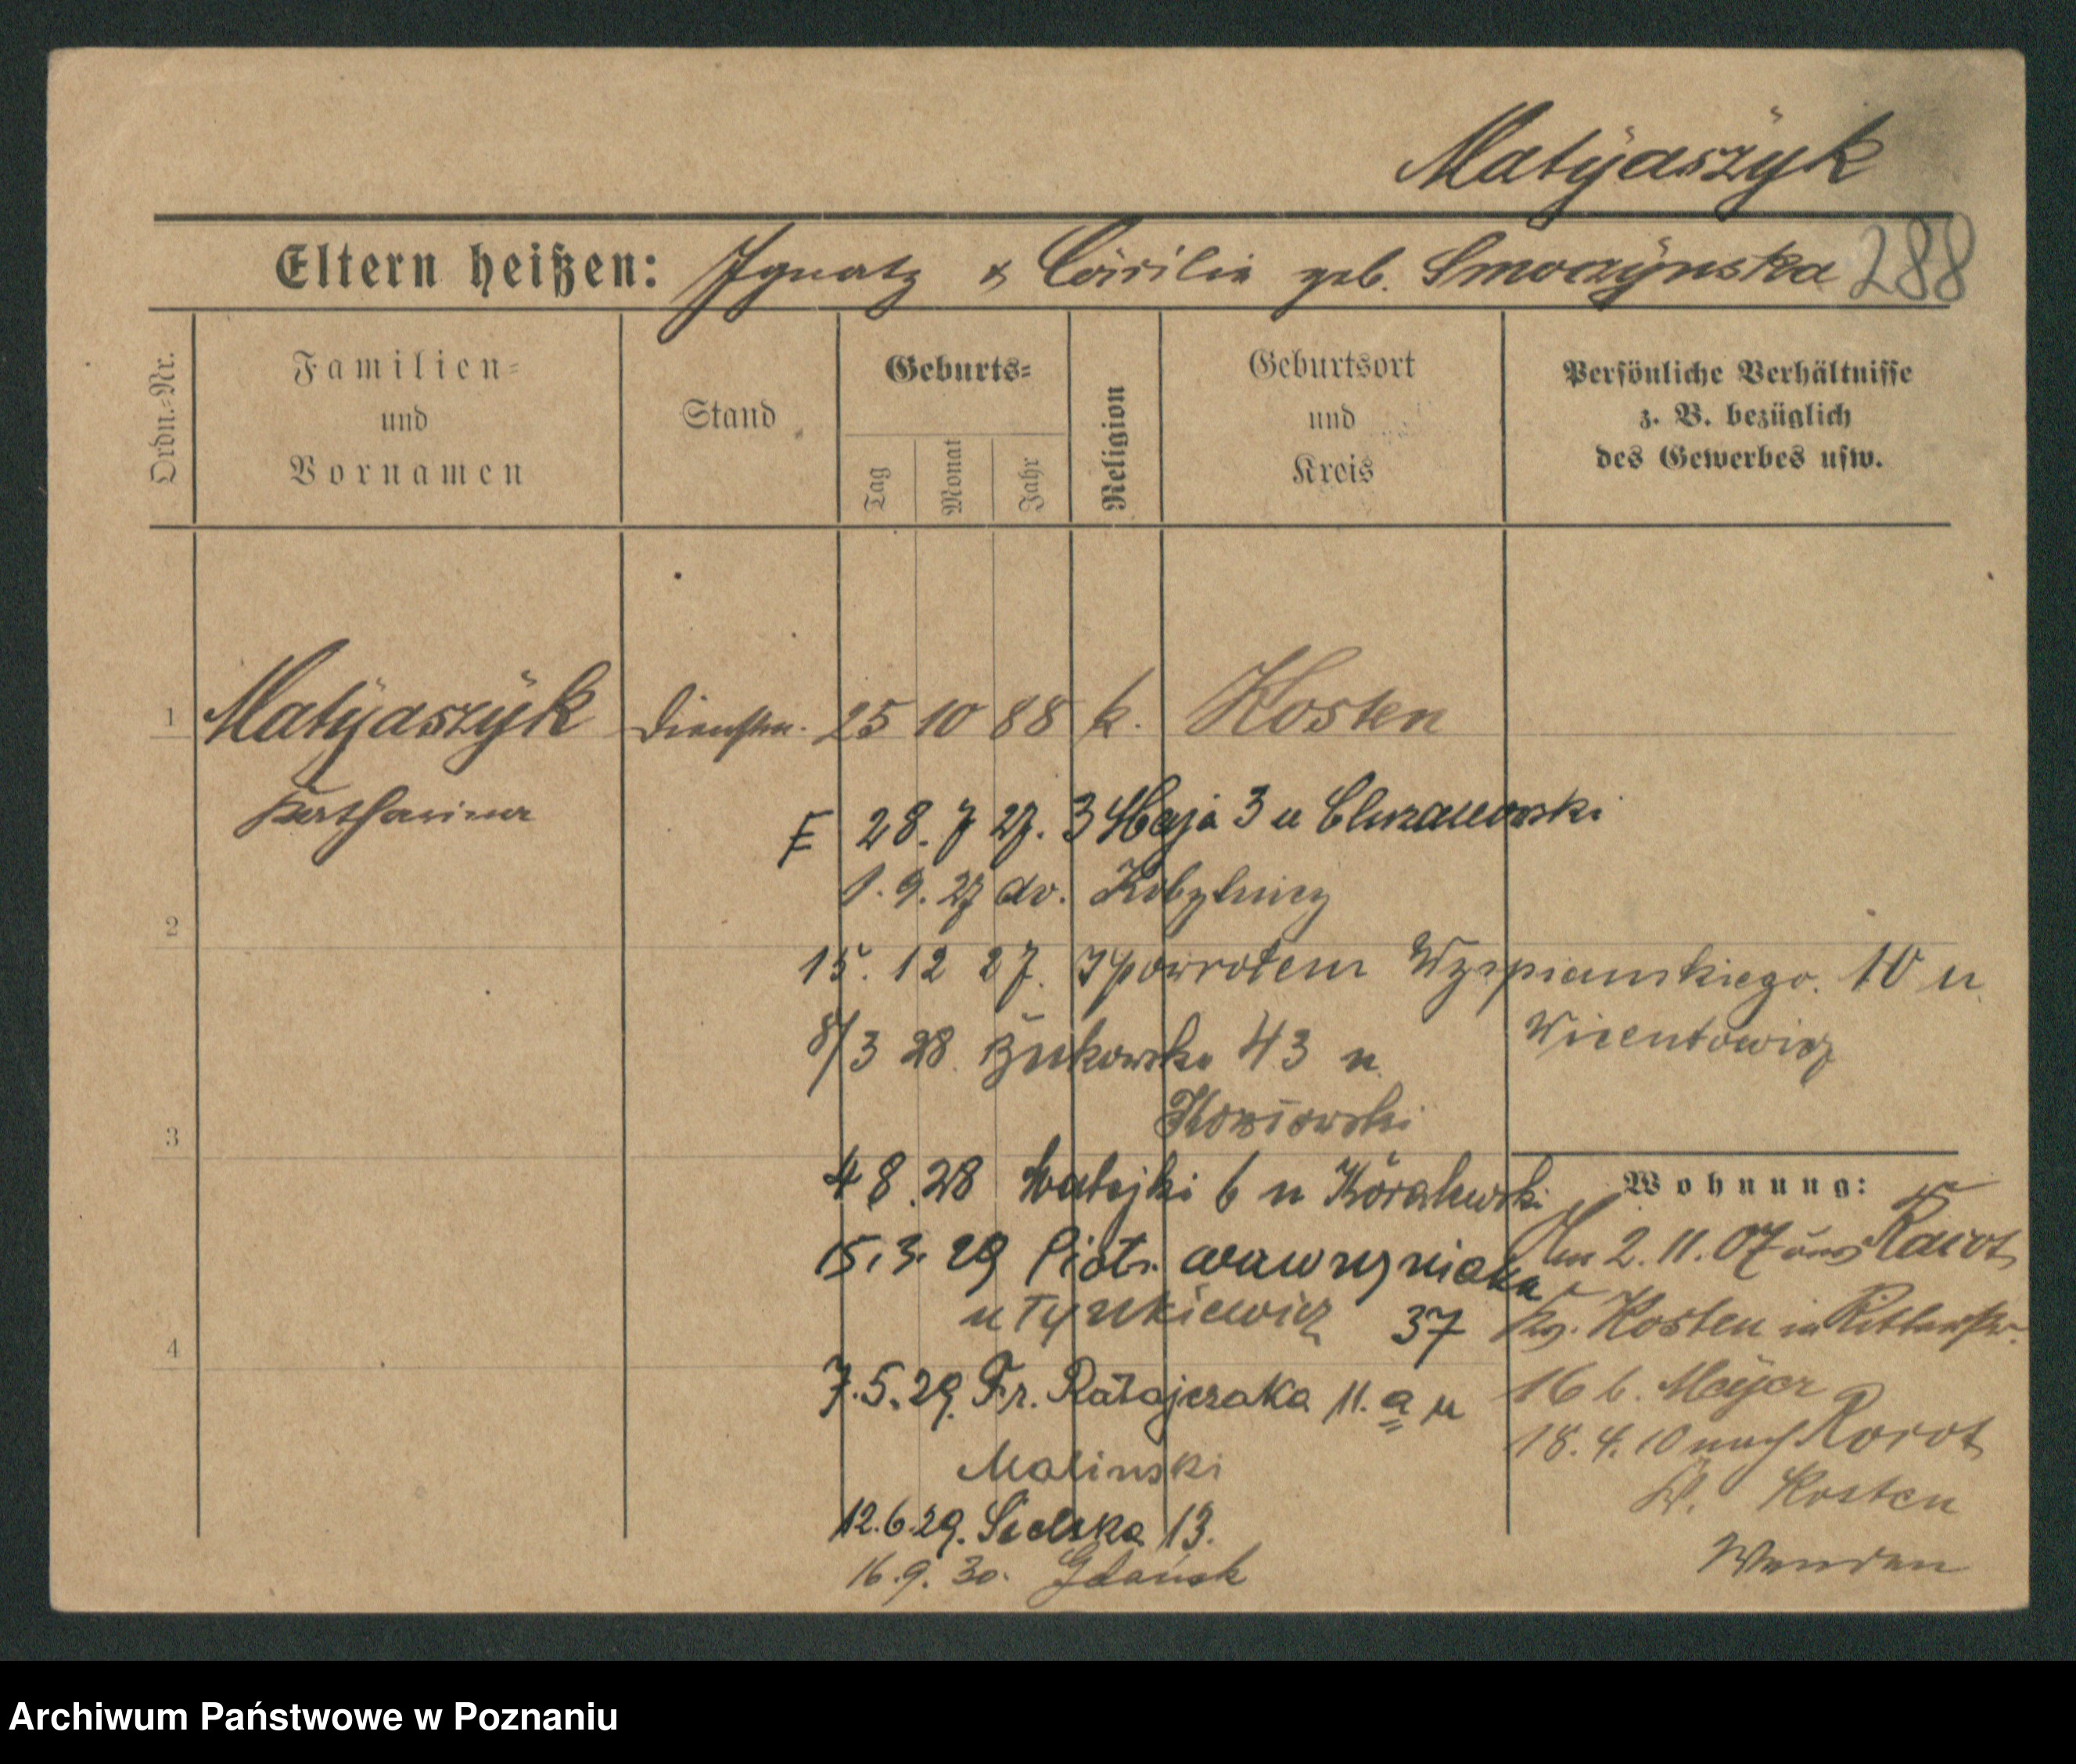 Matÿaszÿk
Eltern heißen: Ignatz & Cäcilie geb. Smoczÿnska 288
Ordn.-Nr.
Familien- und Vornamen
Stand
Geburts-
Tag Monat Jahr
Religion
Geburtsort und Kreis
Persönliche Verhältnisse
z. B. bezüglich
des Gewerbes usw.
1 Matÿaszÿk Dienstm. 25 10 88 k. Kosten
Katharina
E 28. 7 27. 3 Maja 3 u Chrzanowski
1. 9. 27 do. Kobylnicy
2
15. 12 27. Spowrotem Wyspianskiego. 10 u
Wicentowicz
8/3 28. Bukowska 43 u
3
4 8. 28 Matejki 6 u Kóralewski
Wohnung:
15. 3. 29 Piotr. Wawrzyniaka
u Tyszkiewicz 37
Am 2. 11. 07 aus Racot
Kr. Kosten in Ritterstr.
4
7. 5. 29. Fr. Ratajczaka 11. a u
16 b. Meÿer
Malinski
18. 4. 10 nach Racot
K. Kosten
12. 6. 29. Sielska 13.
16. 9. 30. Gdańsk
Archiwum Państwowe w Poznaniu